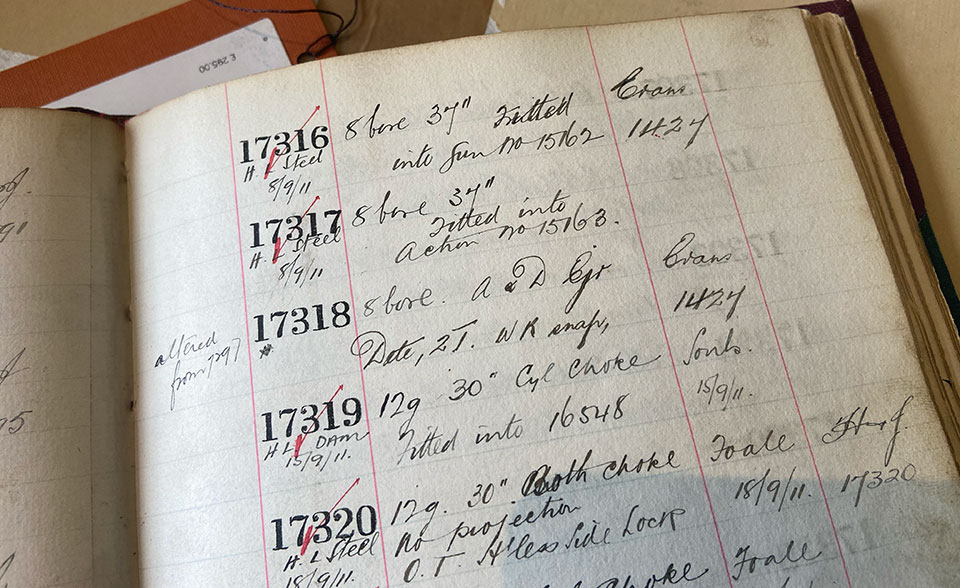 £ 295.00
17316 8 bore 37" Fitted Evans
H. L Steel into Gun no 15162 1424
8/9/11
17317 8 bore 37"
H. L Steel Fitted into
8/9/11 Action no 15163.
17318 8 bore. A & D Ejr Evans
altered Dete, 2T. WR snap, 1424
from 7297
17319 12g 30" Cyl choke
H L DAM Fitted into 16548 15/9/11.
15/9/11.
17320 12g. 30". Both choke Foale
H. L Steel no projection 18/9/11. 17320
18/9/11. O. T. H'less Side Lock
choke Foale